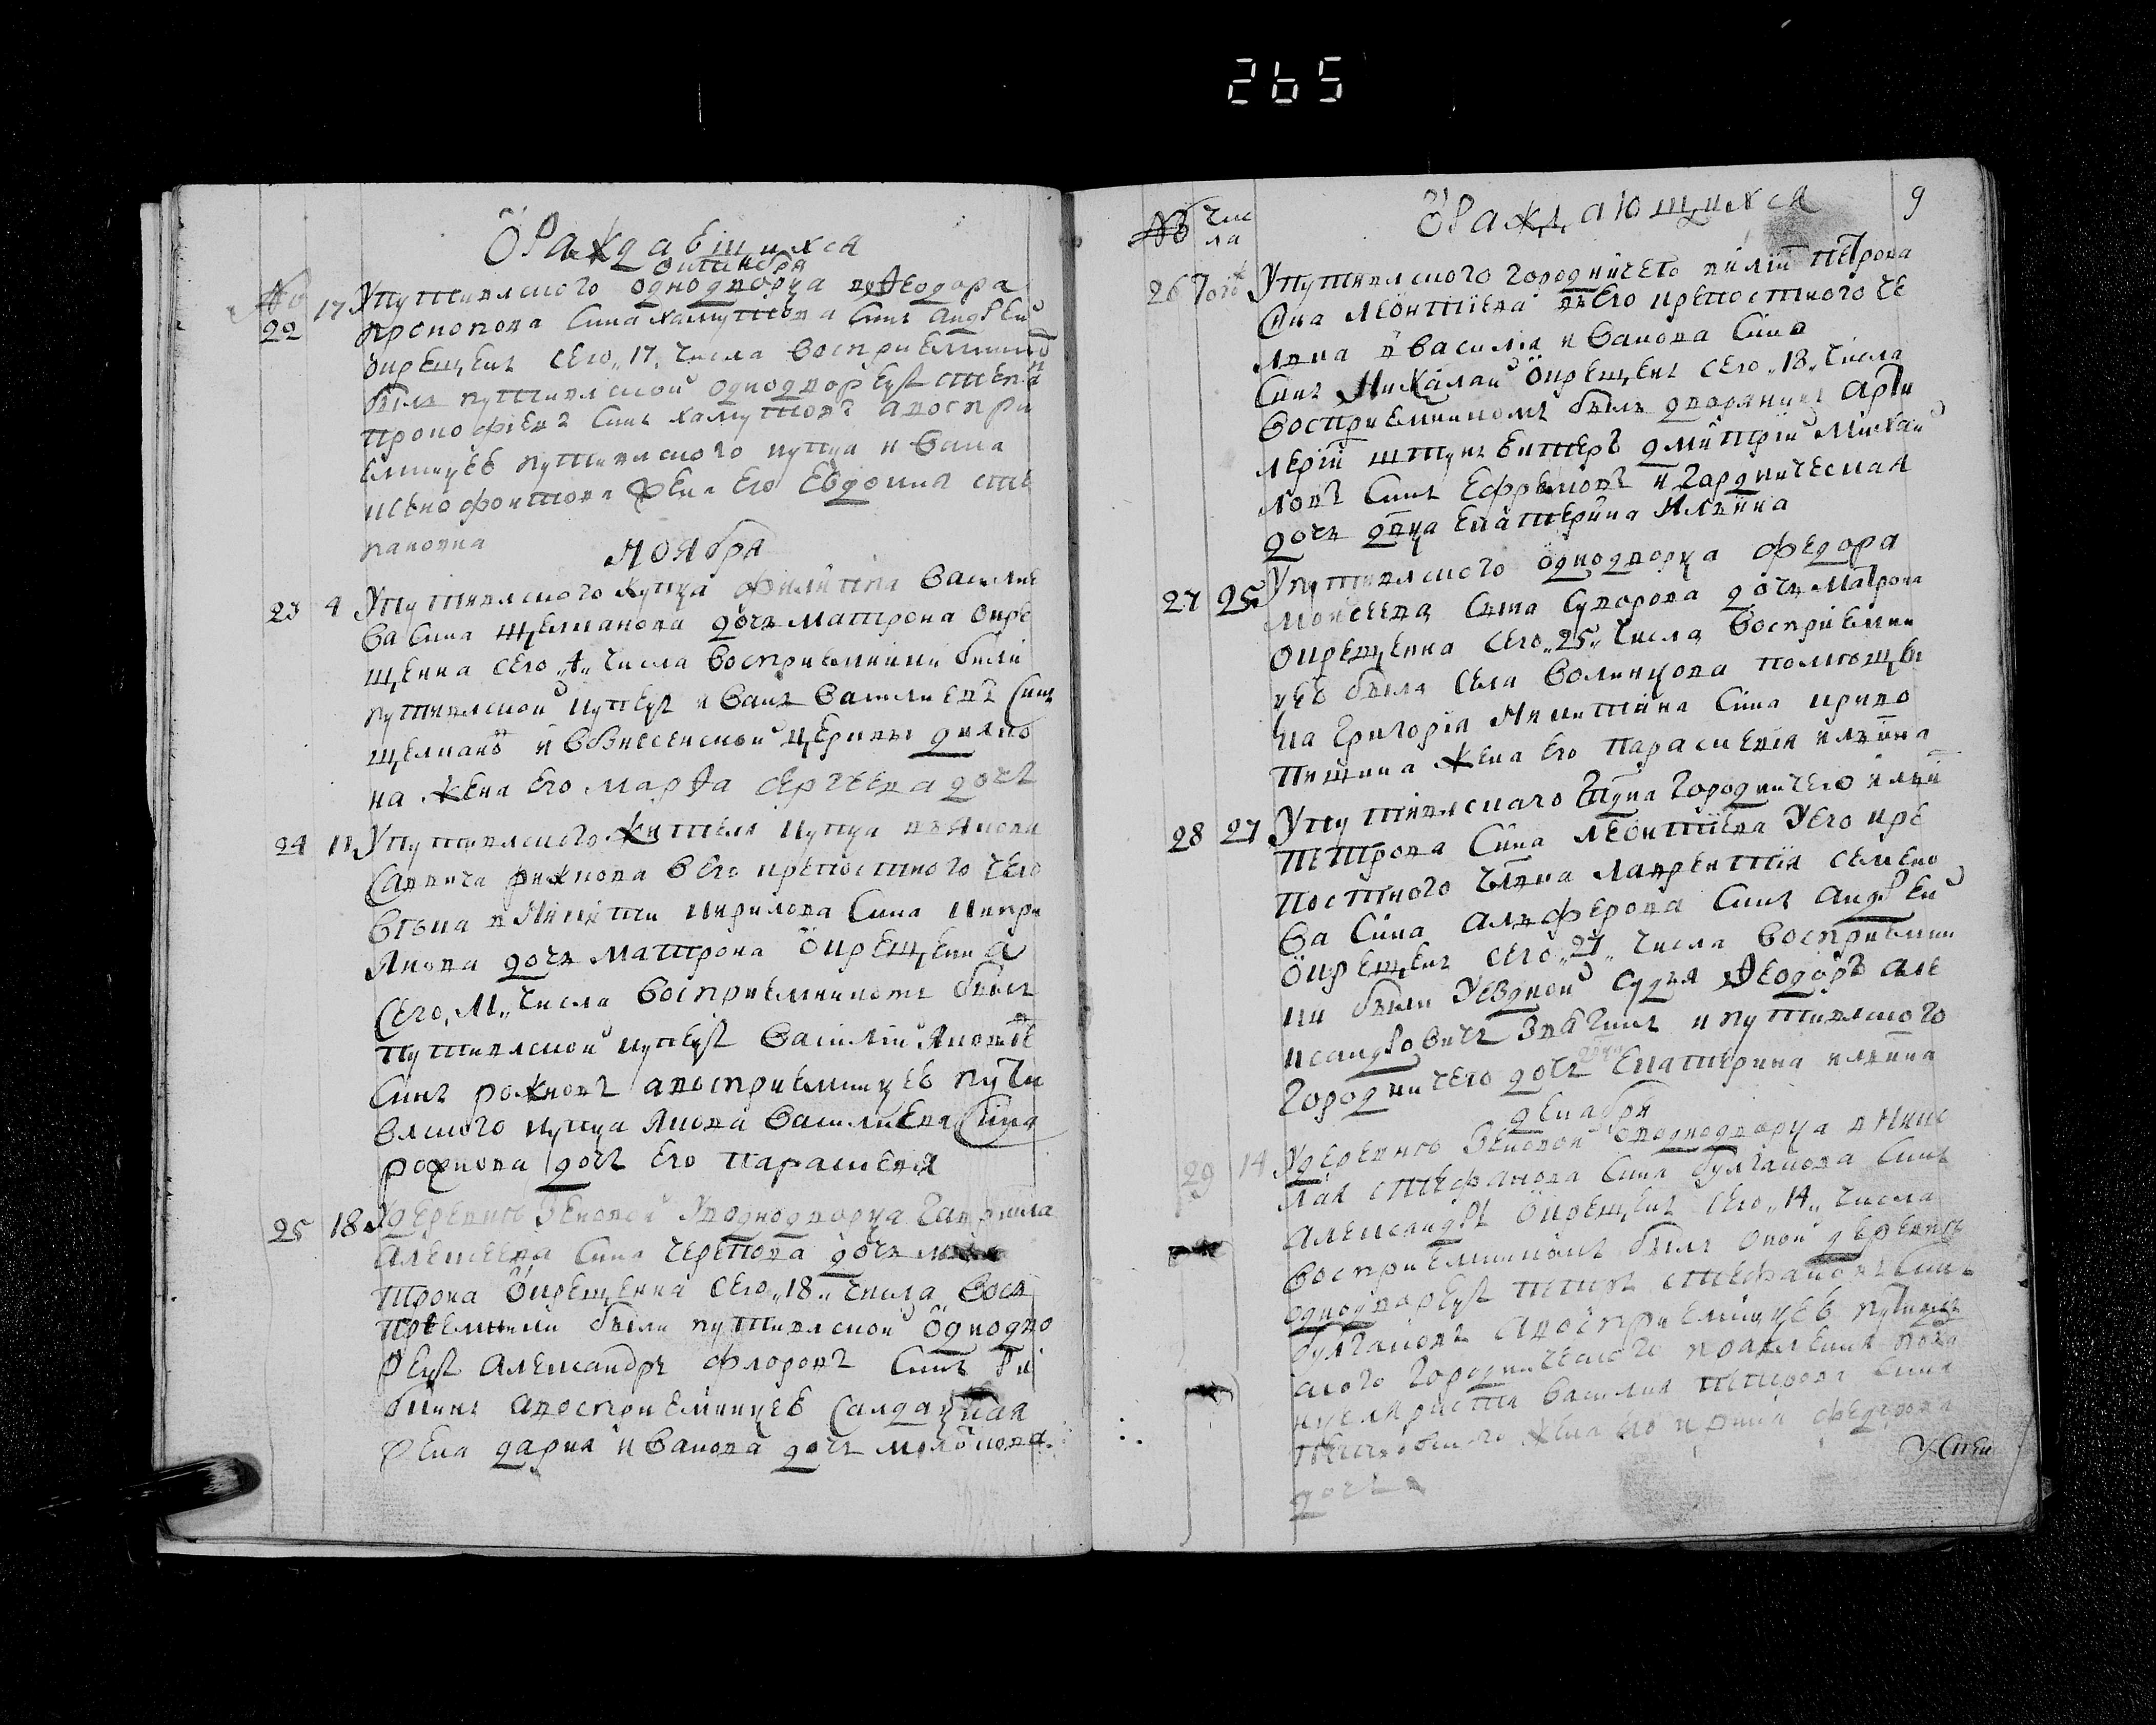 265
О Раждавшихся
октября
No
22 17 У путивлского однодворца Ѳеодора
Прокопова сина Хамутцова синъ Андрей
окрещенъ сего „17„ числа восприемникомъ
билъ путивлской однодворецъ
Прокофіевъ синъ Хамутцовъ а воспри
емницею путивлского купца Ивана
Ксенофонтова жена его Евдокия Сте
пановна
Ноября
23 4 У путивлского купца Филипа Василие
ва сина Щелканова дочь Матрона окре
щенна сего „4„ числа восприемники били
путивлской купецъ Иванъ Василиевъ синъ
Щелкановъ и Вознесенской церкви дияко
на жена его Марѳа Сергеева дочь
24 11 У путивлского жителя купца Якова
Саввича Рижкова в его крепостного чело
века Никити Кирилова сина
дочь Матрона окрещенна
сего „11„ числа восприемникомъ билъ
путивлской купецъ Василій Яковлевъ
синъ Рожковъ а восприемницею пути
влского купца Якова Василиева сина
Рожкова дочь его Параскевия
25 18 У деревне Бековой у однодворца Гаврила
Алексеева сина Черепова дочь Ма
трона окрещенна сего „18„ числа вос
приемники били путивлской однодво
рецъ Александръ Флоровъ синъ Ри
бкинъ а восприемницею салдацкая
жена Дария Иванова дочь Молокова
О Раждающихся 9
No Чис
ла
26 У путивлского городничего Иліи Петрова
сина Леонтіева в его крепостного че
лвка Василія Иванова сина
синъ Николай окрещенъ сего „18„ числа
восприемникомъ билъ дворянинъ арти
лерій штикъ юнкеръ Дмитрій Михай
ловъ синъ Ефремовъ и гародническая
дочь двца Екатерина Илиина
27 25 У путивлского однодворца Федора
Моисеева сина Суворова дочь Матрона
окрещенна сего „25„ числа восприемни
цею била села Волинцова помющи
ка Григорія Никитіна сина Криво
пишина жена его Параскевія Илиина
28 27 У путивлскаго гдна городничего Иліи
Петрова сина Леонтіева у его кре
постного члвка Лаврентія Семено
ва сина Алферова синъ Андрей
окрещенъ сего „27„ числа восприемни
ки били уездной судья Ѳеодоръ Але
ксандровичъ Звягинъ и путивлского
городничего дочь двца Екатерина Илиина
декабря
29 14 У деревнго Бековой однодворца Нико
лая Стефанова сина Булгакова синъ
Александръ окрещенъ сего „14„ числа
восприемникомъ билъ оной деревни
однодворецъ Титъ Стефановъ синъ
Булгаковъ а восприемницею путивл
ского городнического правления кан
целяриста Василия Петрова сина
жена его Ирина Федорова
дочь